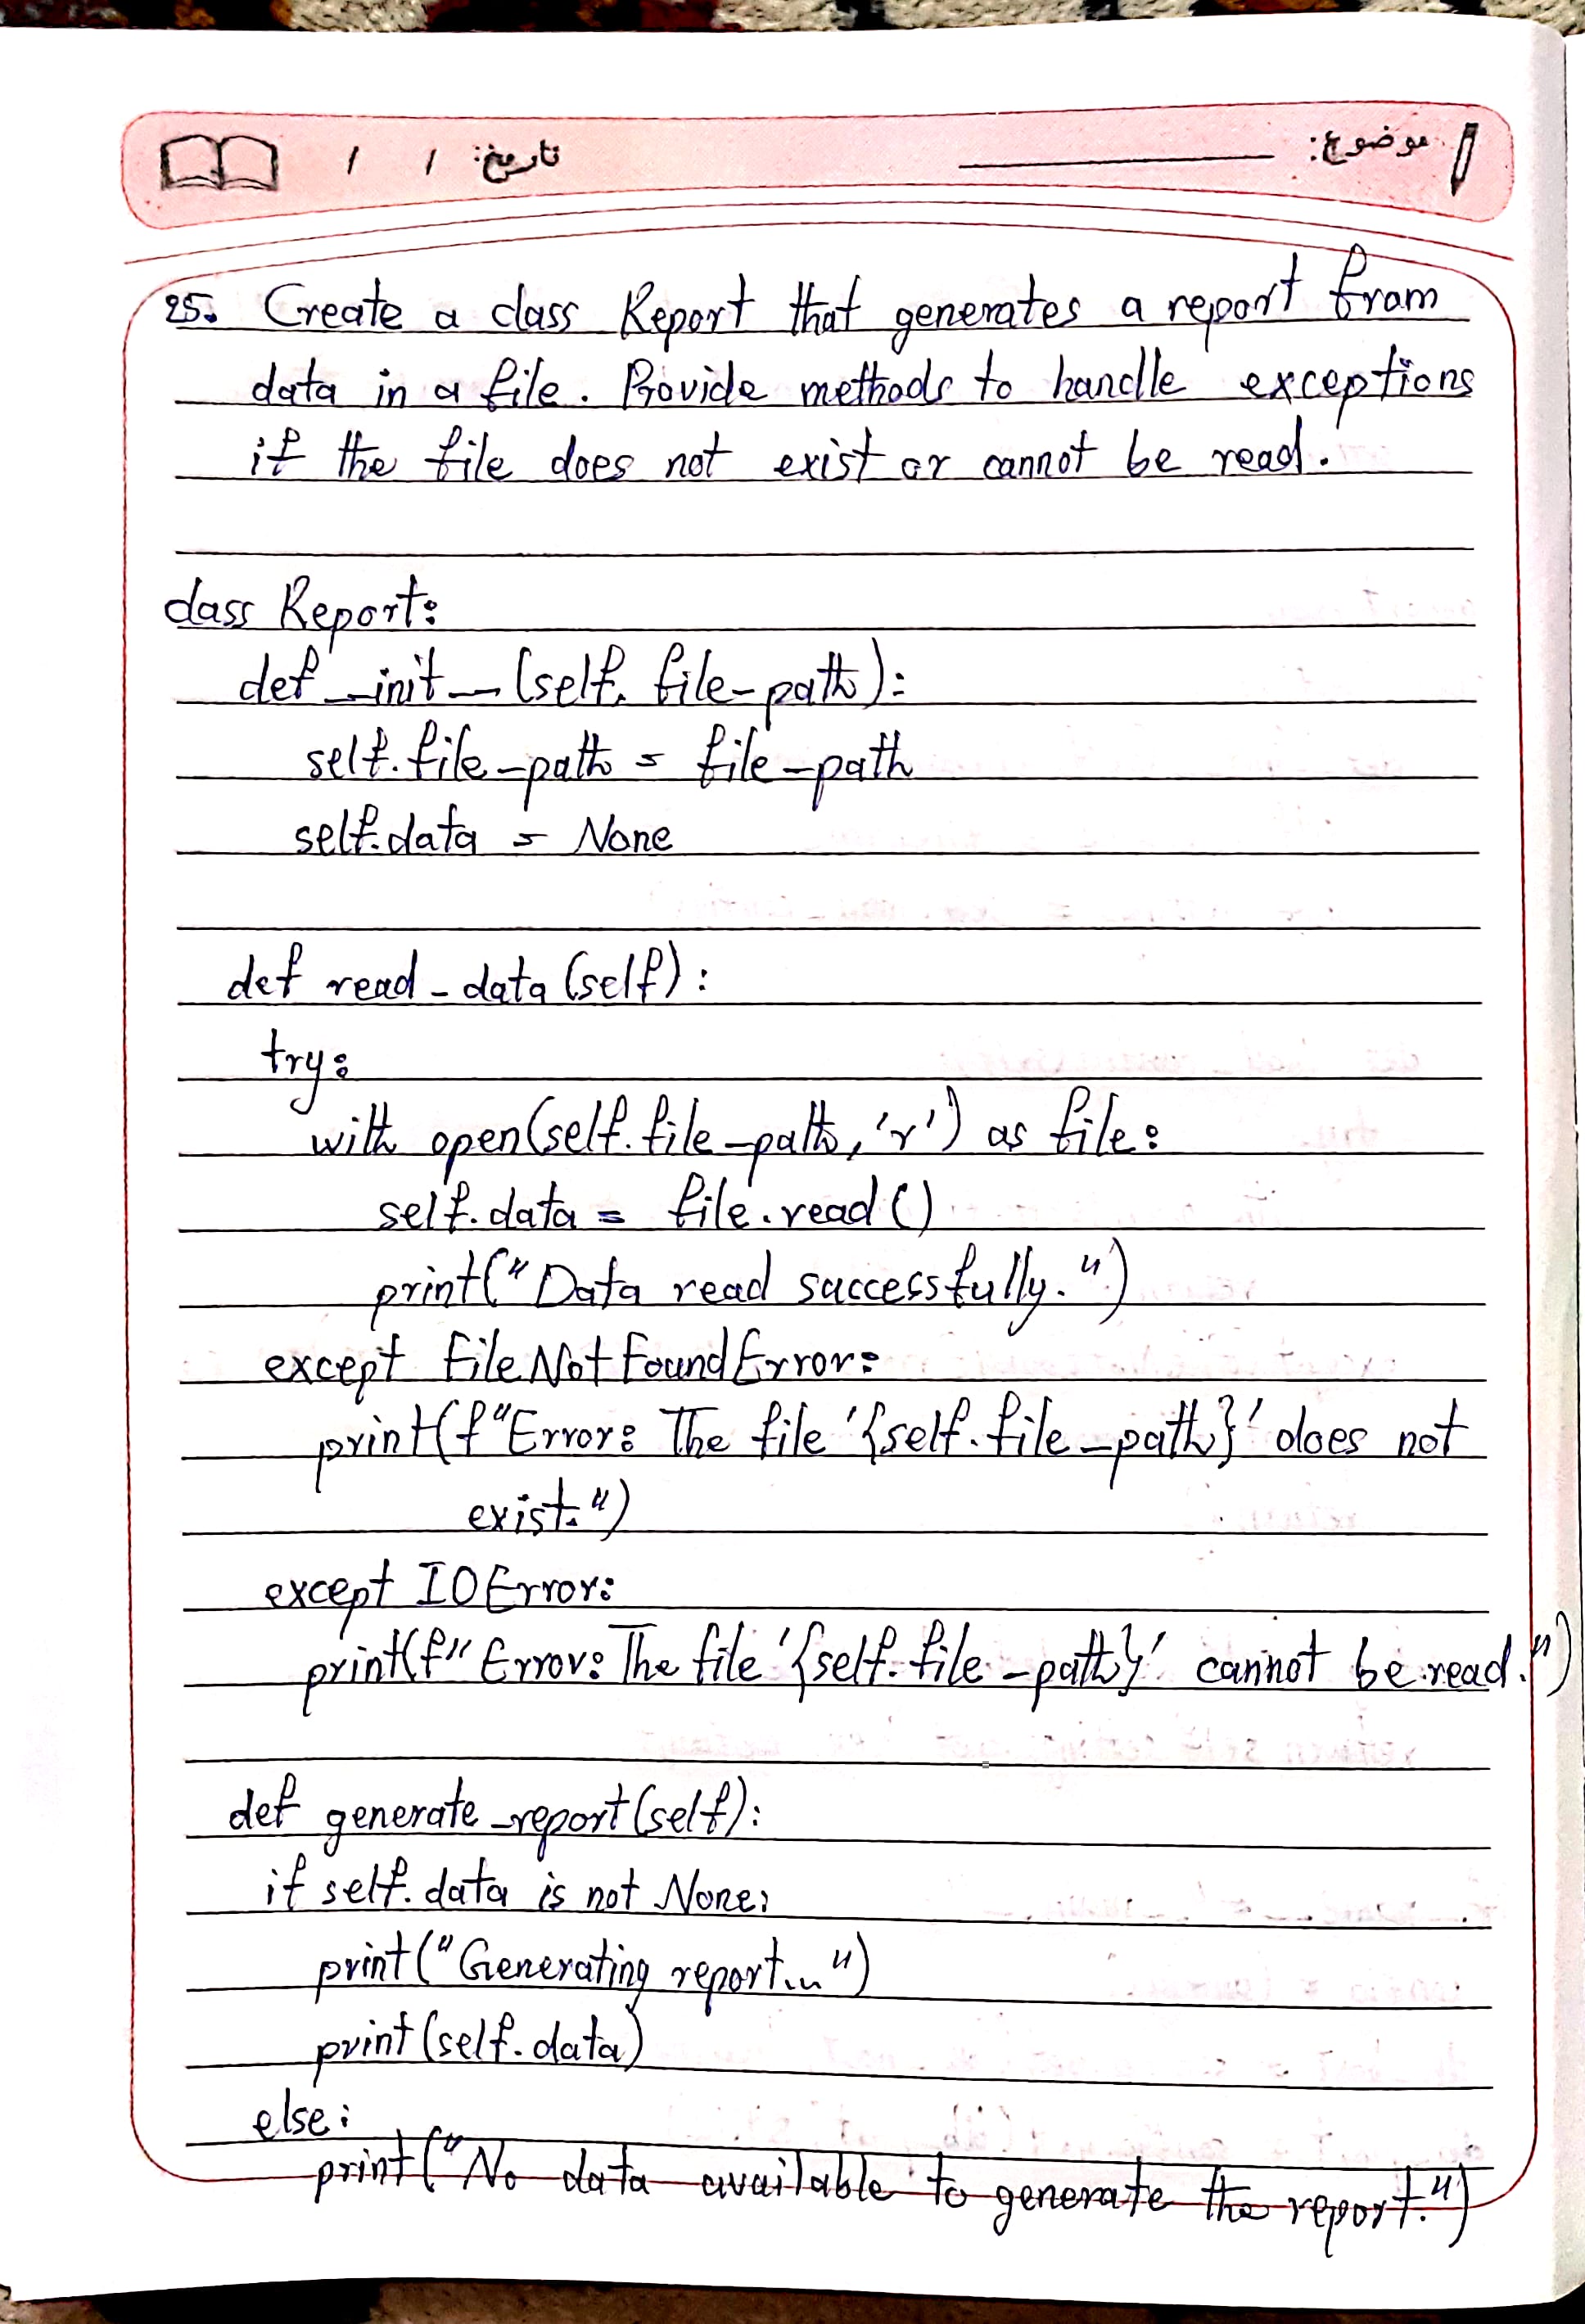 موضوع:
تاریخ: / /
25. Create a class Report that generates a report from
data in a file. Provide methods to handle exceptions
if the file does not exist or cannot be read.
class Report:
def __init__(self, file_path):
self.file_path = file_path
self.data = None
def read_data(self):
try:
with open(self.file_path, 'r') as file:
self.data = file.read()
print("Data read successfully.")
except FileNotFoundError:
print(f"Error: The file '{self.file_path}' does not
exist.")
except IOError:
print(f"Error: The file '{self.file_path}' cannot be read.")
def generate_report(self):
if self.data is not None:
print("Generating report...")
print(self.data)
else:
print("No data available to generate the report.")